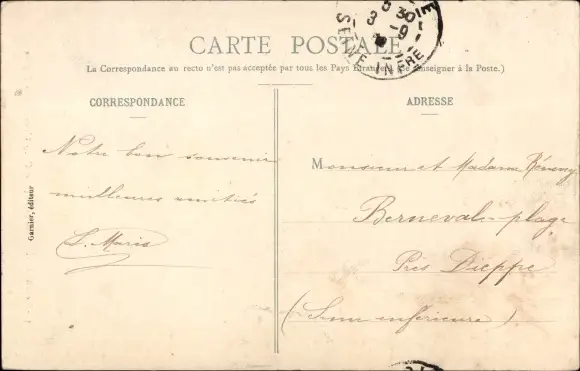 CARTE POSTALE
8 30
3 -9
SEINE INFRE
La Correspondance au recto n'est pas acceptée par tous les Pays Etrangers. (Se renseigner à la Poste.)
CORRESPONDANCE
Notre bon souvenir
meilleures amitiés
L. Maris
Garnier, éditeur
ADRESSE
Monsieur et Madame
Berneval-plage
Près Dieppe
(Seine inférieure)